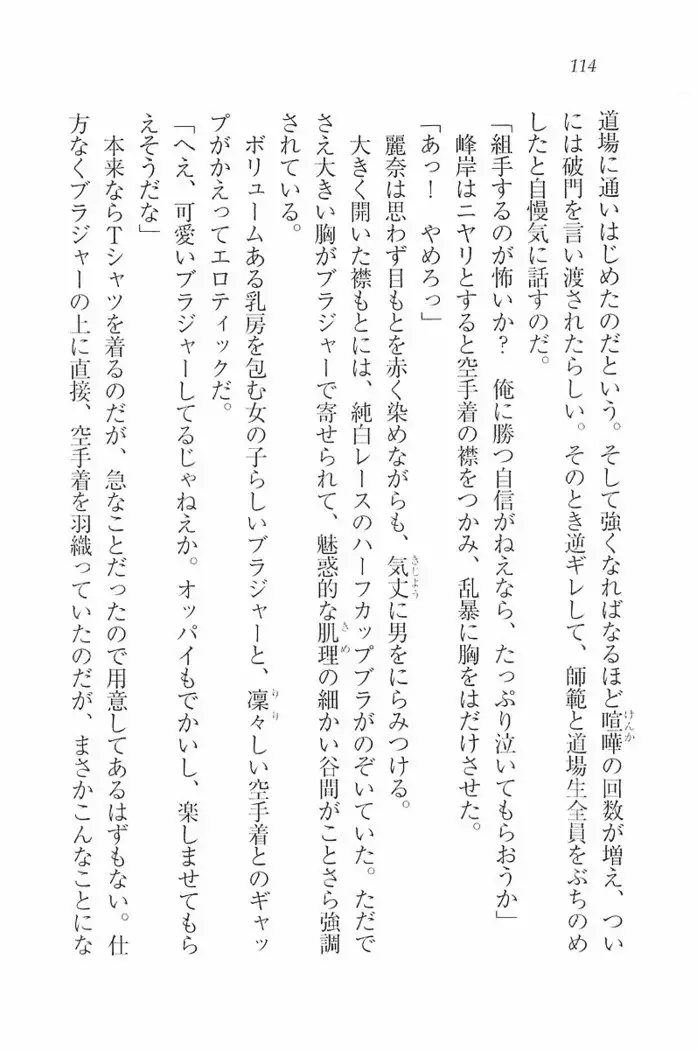 114
道場に通いはじめたのだという。そして強くなればなるほど喧嘩の回数が増え、つい
には破門を言い渡されたらしい。そのとき逆ギレして、師範と道場生全員をぶちのめ
したと自慢気に話すのだ。
「組手するのが怖いか？　俺に勝つ自信がねえなら、たっぷり泣いてもらおうか」
峰岸はニヤリとすると空手着の襟をつかみ、乱暴に胸をはだけさせた。
「あっ！　やめろっ」
麗奈は思わず目もとを赤く染めながらも、気丈に男をにらみつける。
大きく開いた襟もとには、純白レースのハーフカップブラがのぞいていた。ただで
さえ大きい胸がブラジャーで寄せられて、魅惑的な肌理の細かい谷間がことさら強調
されている。
ボリュームある乳房を包む女の子らしいブラジャーと、凜々しい空手着とのギャッ
プがかえってエロティックだ。
「へえ、可愛いブラジャーしてるじゃねえか。オッパイもでかいし、楽しませてもら
えそうだな」
本来ならTシャツを着るのだが、急なことだったので用意してあるはずもない。仕
方なくブラジャーの上に直接、空手着を羽織っていたのだが、まさかこんなことにな